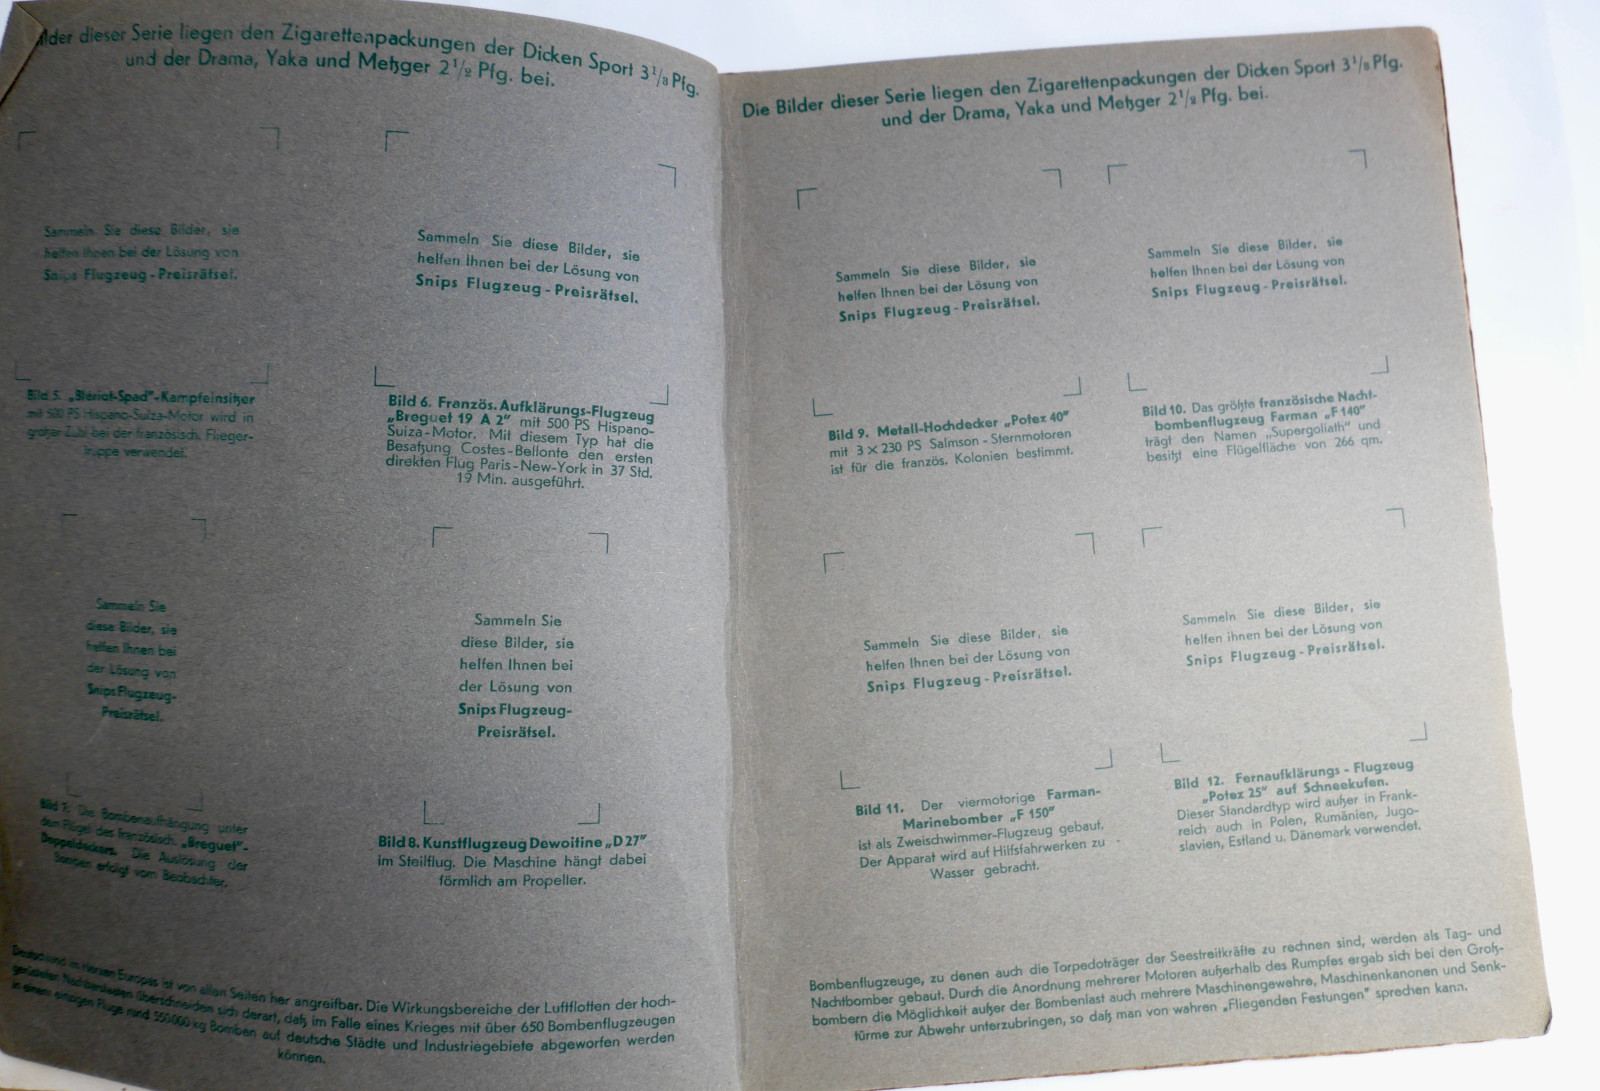 ilder dieser Serie liegen den Zigarettenpackungen der Dicken Sport 3 1/3 Pfg.
und der Drama, Yaka und Metzger 2 1/2 Pfg. bei.
Sammeln Sie diese Bilder, sie
helfen Ihnen bei der Lösung von
Snips Flugzeug-Preisrätsel.
Sammeln Sie diese Bilder, sie
helfen Ihnen bei der Lösung von
Snips Flugzeug-Preisrätsel.
Bild 5. „Blériot-Spad"-Kampfeinsitzer
mit 500 PS Hispano-Suiza-Motor wird in
großer Zahl bei der französisch. Flieger-
truppe verwendet.
Bild 6. Französ. Aufklärungs-Flugzeug
„Breguet 19 A 2" mit 500 PS Hispano-
Suiza-Motor. Mit diesem Typ hat die
Besatzung Costes-Bellonte den ersten
direkten Flug Paris-New-York in 37 Std.
19 Min. ausgeführt.
Sammeln Sie
diese Bilder, sie
helfen Ihnen bei
der Lösung von
Snips Flugzeug-
Preisrätsel.
Sammeln Sie
diese Bilder, sie
helfen Ihnen bei
der Lösung von
Snips Flugzeug-
Preisrätsel.
Bild 7. Die Bombenaufhängung unter
den Flügel des französisch. „Breguet"-
Doppeldeckers. Die Auslösung der
Bomben erfolgt vom Beobachter.
Bild 8. Kunstflugzeug Dewoitine „D 27"
im Steilflug. Die Maschine hängt dabei
förmlich am Propeller.
Deutschland im Herzen Europas ist von allen Seiten her angreifbar. Die Wirkungsbereiche der Luftflotten der hoch-
gerüsteten Nachbarstaaten überschneiden sich derart, daß im Falle eines Krieges mit über 650 Bombenflugzeugen
in einem einzigen Fluge rund 350000 kg Bomben auf deutsche Städte und Industriegebiete abgeworfen werden
können.
Die Bilder dieser Serie liegen den Zigarettenpackungen der Dicken Sport 3 1/3 Pfg.
und der Drama, Yaka und Metzger 2 1/2 Pfg. bei.
Sammeln Sie diese Bilder, sie
helfen Ihnen bei der Lösung von
Snips Flugzeug-Preisrätsel.
Sammeln Sie diese Bilder, sie
helfen Ihnen bei der Lösung von
Snips Flugzeug-Preisrätsel.
Bild 9. Metall-Hochdecker „Potez 40"
mit 3 × 230 PS Salmson-Sternmotoren
ist für die französ. Kolonien bestimmt.
Bild 10. Das größte französische Nacht-
bombenflugzeug Farman „F 140"
trägt den Namen „Supergoliath" und
besitzt eine Flügelfläche von 266 qm.
Sammeln Sie diese Bilder, sie
helfen Ihnen bei der Lösung von
Snips Flugzeug-Preisrätsel.
Sammeln Sie diese Bilder, sie
helfen ihnen bei der Lösung von
Snips Flugzeug-Preisrätsel.
Bild 11. Der viermotorige Farman-
Marinebomber „F 150"
ist als Zweischwimmer-Flugzeug gebaut.
Der Apparat wird auf Hilfsfahrwerken zu
Wasser gebracht.
Bild 12. Fernaufklärungs-Flugzeug
„Potez 25" auf Schneekufen.
Dieser Standardtyp wird außer in Frank-
reich auch in Polen, Rumänien, Jugo-
slavien, Estland u. Dänemark verwendet.
Bombenflugzeuge, zu denen auch die Torpedoträger der Seestreitkräfte zu rechnen sind, werden als Tag- und
Nachtbomber gebaut. Durch die Anordnung mehrerer Motoren außerhalb des Rumpfes ergab sich bei den Groß-
bombern die Möglichkeit außer der Bombenlast auch mehrere Maschinengewehre, Maschinenkanonen und Senk-
türme zur Abwehr unterzubringen, so daß man von wahren „Fliegenden Festungen" sprechen kann.